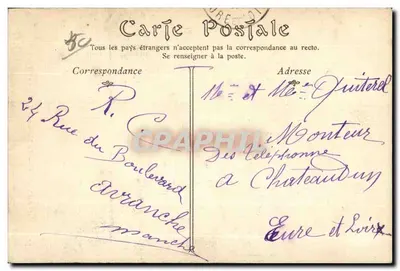 Carte Postale
Tous les pays étrangers n'acceptent pas la correspondance au recto.
Se renseigner à la poste.
Correspondance
Adresse
R. C
24 Rue du Boulevard
avranche
manche
CARTHAPHILE
Mr et Me Quiterel
Monteur
Des Téléphonne
a Chateaudun
Eure et Loir